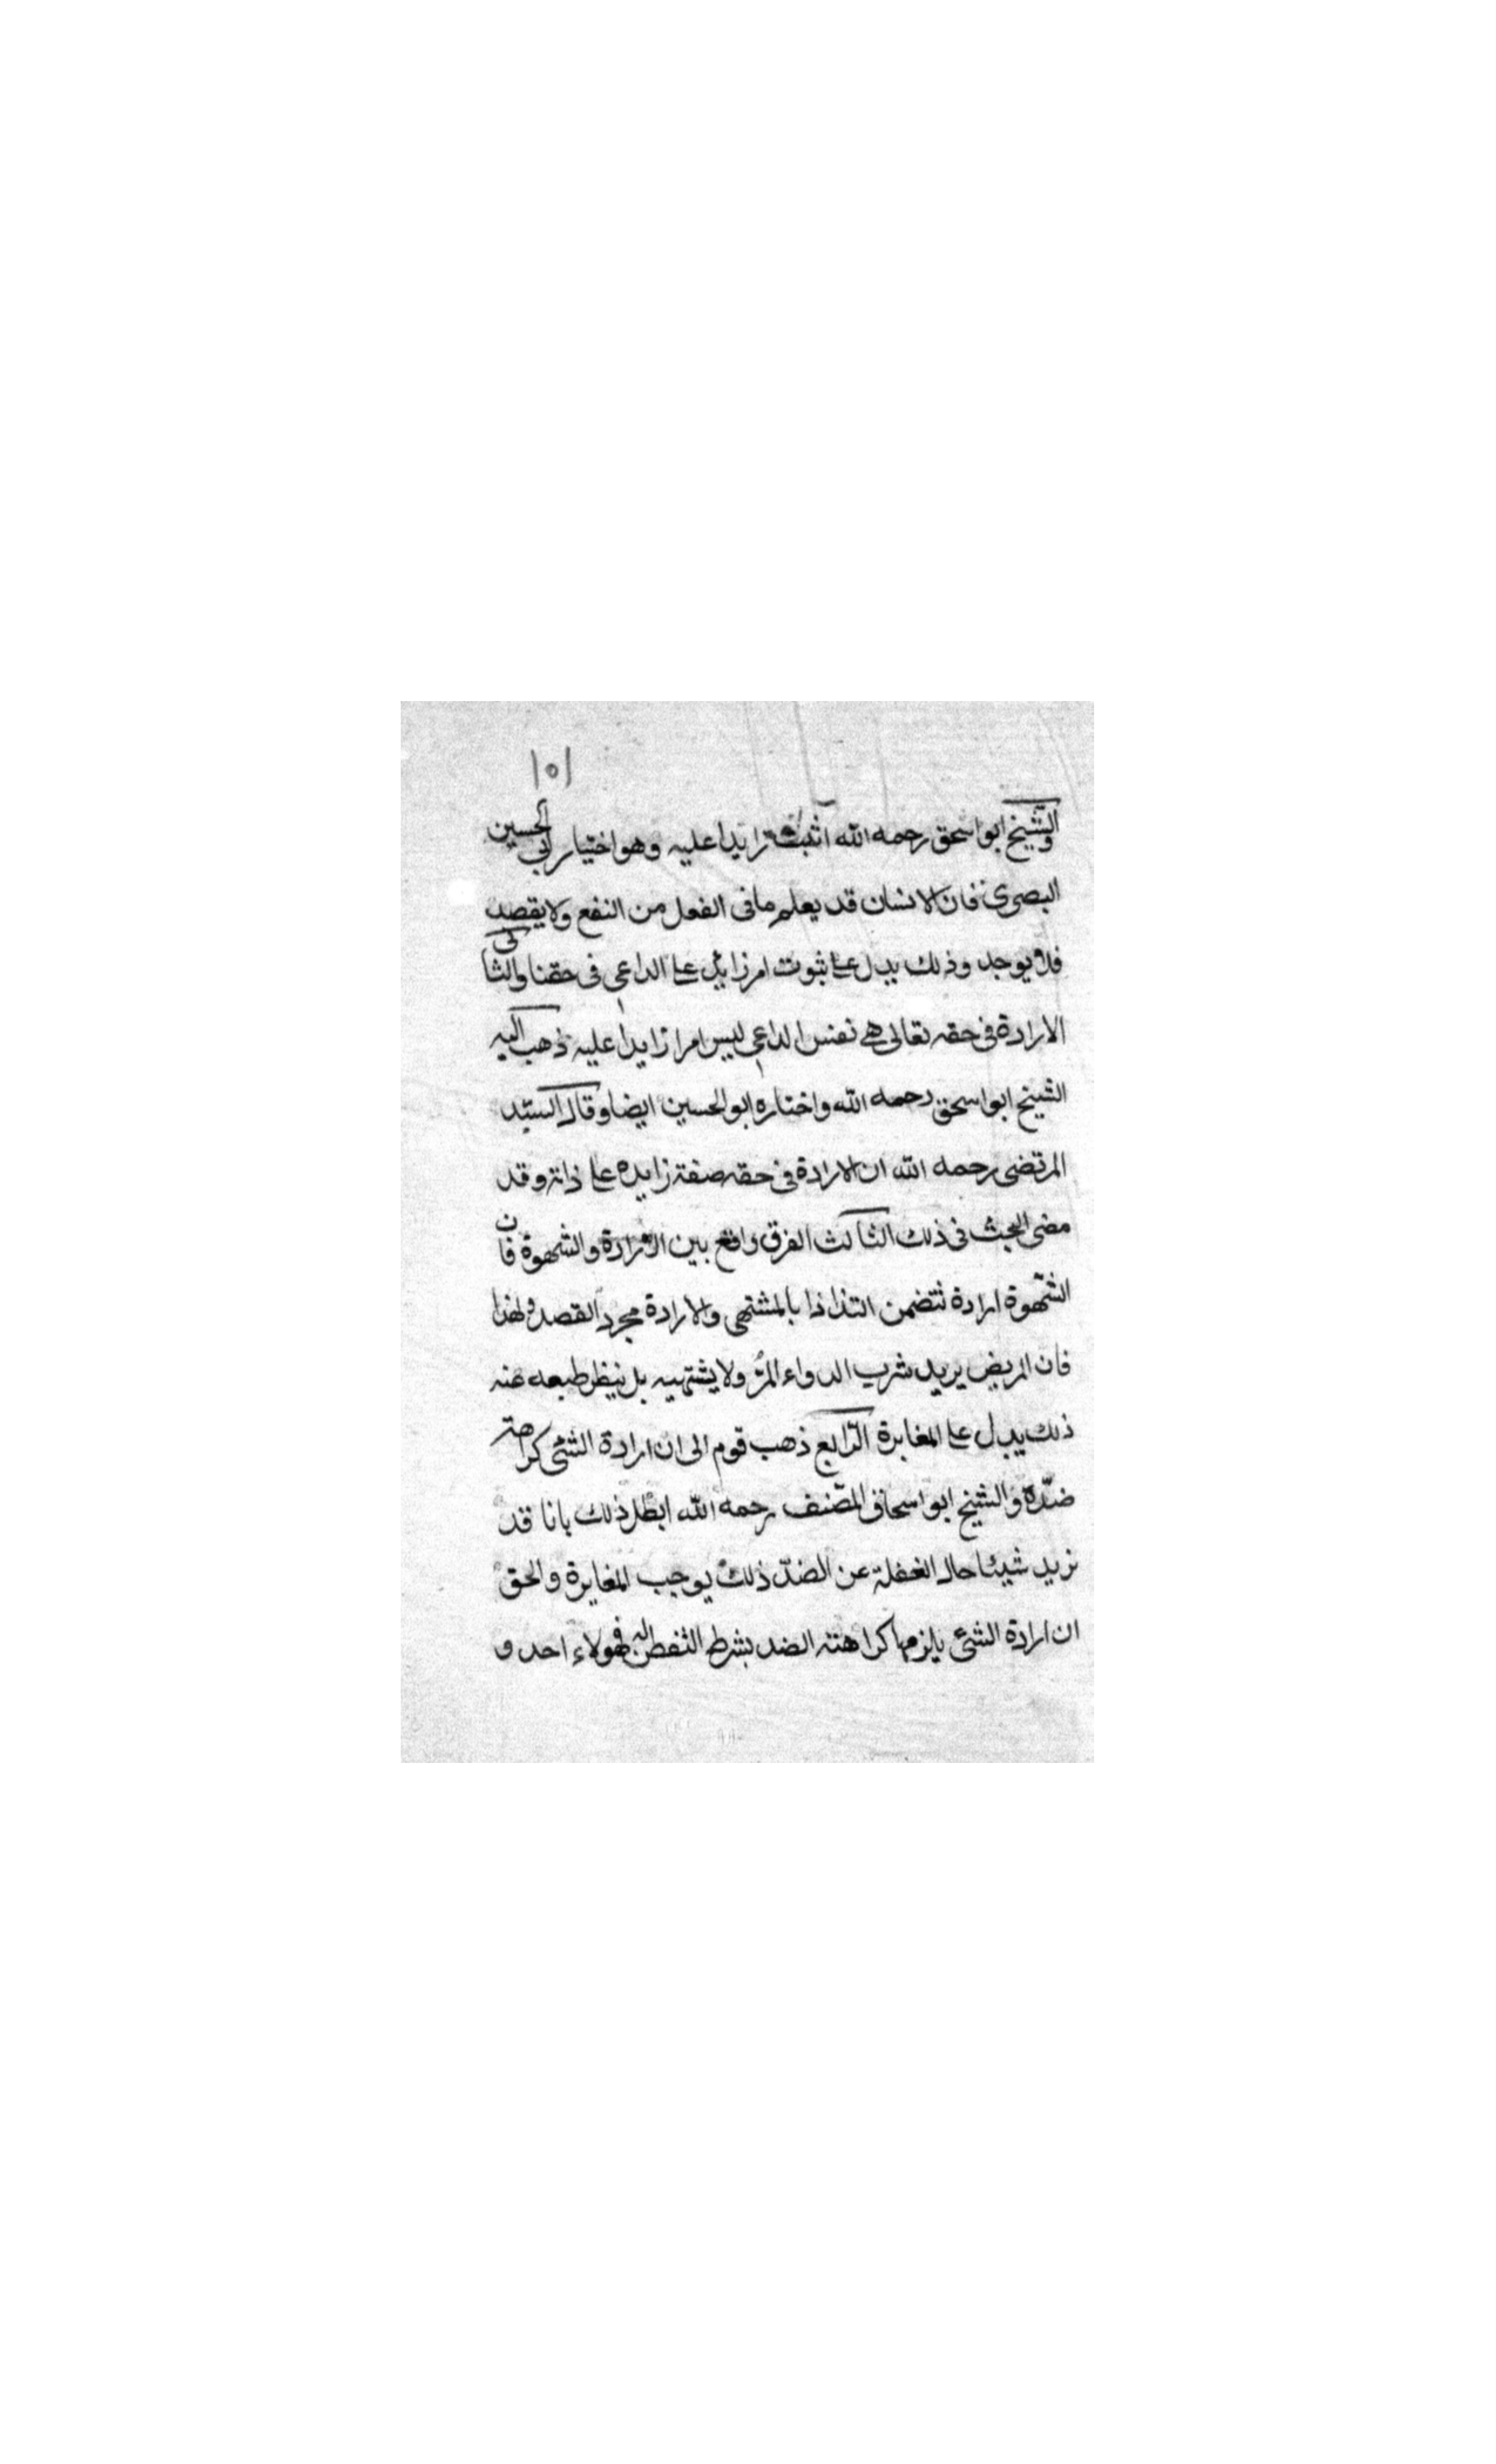 ١٥١
والشيخ ابو اسحق رحمه الله اثبته زايدا عليه وهو اختيار ابي الحسين
البصرى فان الانسان قد يعلم ما فى الفعل من النفع ولا يقصد
فلا يوجد وذلك يدل على ثبوت امر زايد على الداعى فى حقنا والثانى
الارادة فى حقه تعالى هى نفس الداعى ليس امرا زايدا عليه ذهب اليه
الشيخ ابو اسحق رحمه الله واختاره ابو الحسين ايضا وقال السيّد
المرتضى رحمه الله ان الارادة فى حقه صفة زايده على ذاته وقد
مضى البحث فى ذلك الثالث الفرق واقع بين الارادة والشهوة فان
الشهوة ارادة تتضمن التذاذا بالمشتهى والارادة مجرد القصد ولهذا
فان المريض يريد شرب الدواء المرّ ولا يشتهيه بل ينفر طبعه عنه
ذلك يدل على المغايرة الرّابع ذهب قوم الى ان ارادة الشئ كراهة
ضدّه والشيخ ابو اسحاق المصّنف رحمه الله ابطل ذلك بانا قد
نريد شيئا حال الغفلة عن الضدّ ذلك يوجب المغايرة والحق
ان ارادة الشئ يلزمها كراهته الضد بشرط التفطن له فهولاء احد و